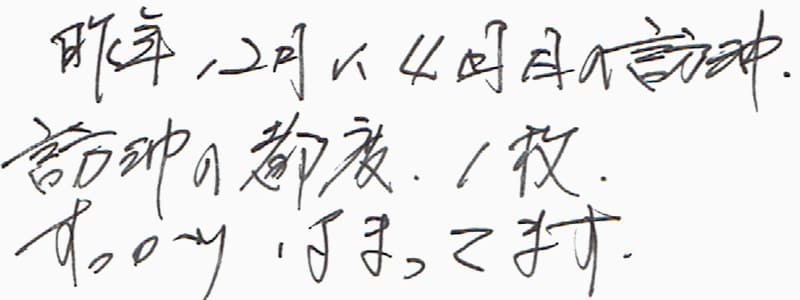 昨年12月に4回目の訪沖.
訪沖の都度.1枚.
すっかりはまってます.